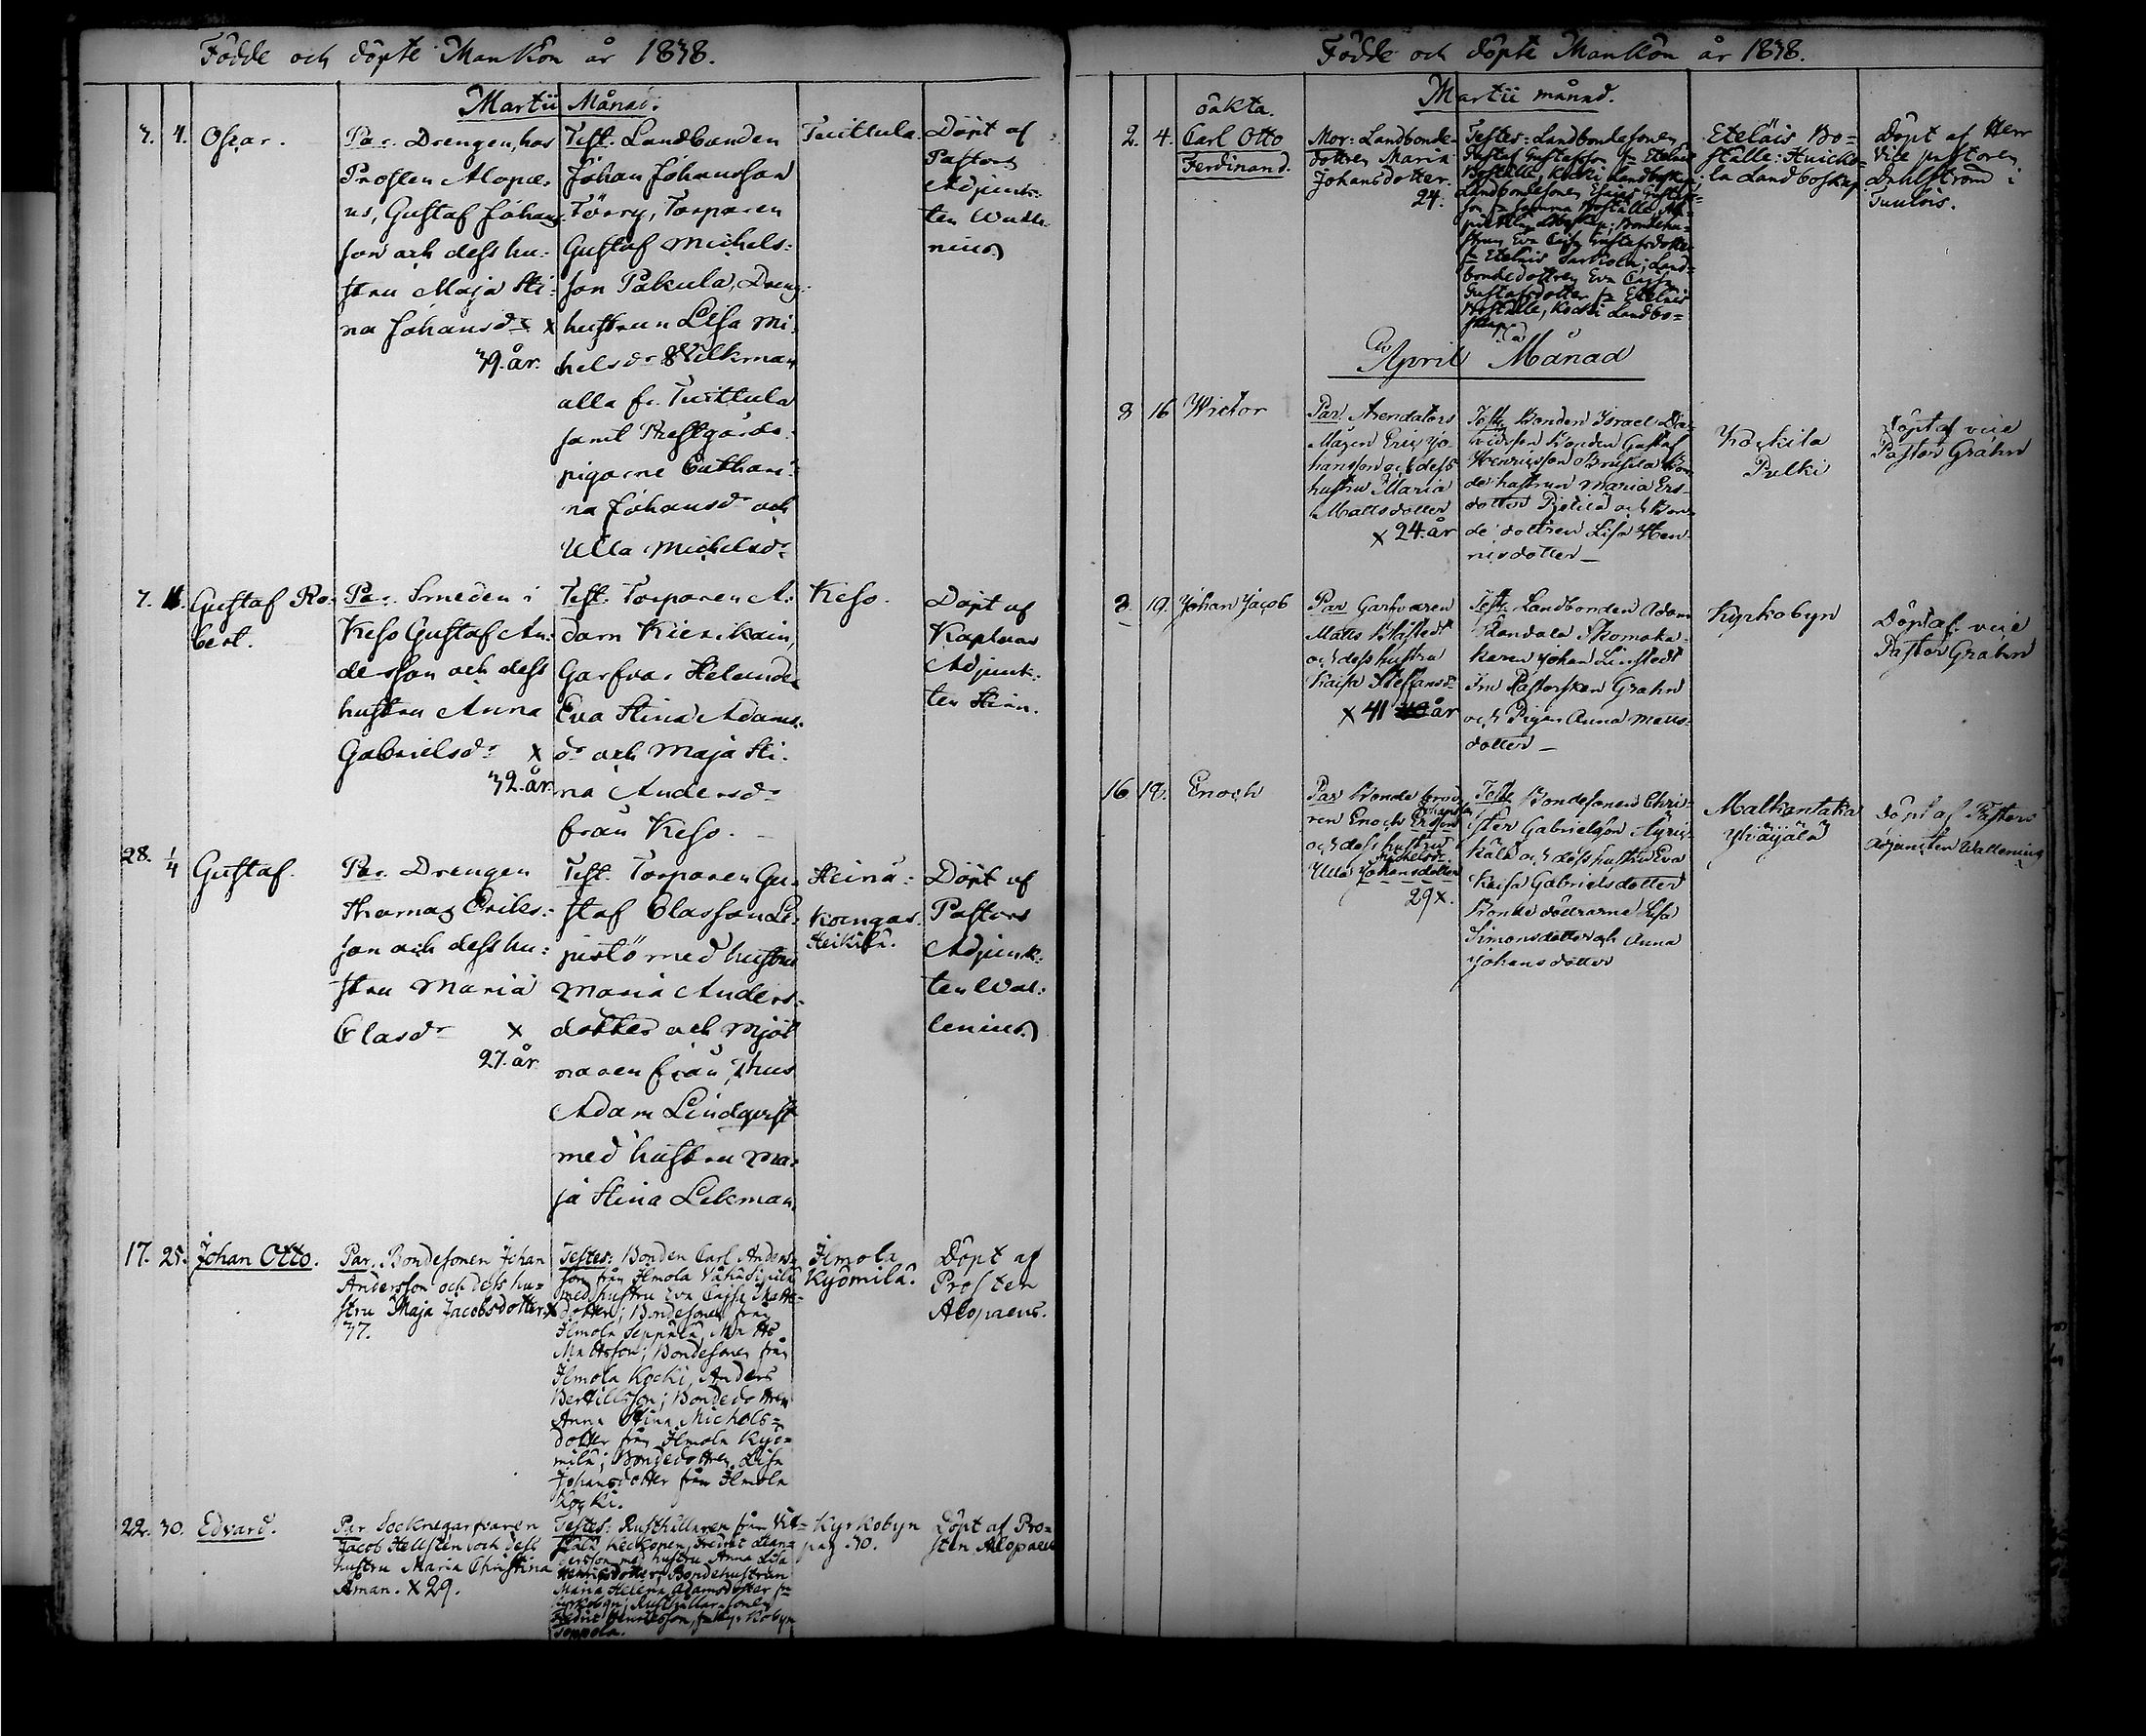 Födde och döpte Mankön år 1838.
Martii Månad.
3. 4. Oscar.
Par. Drengen, hos
Prosten Alopæ-
us, Gustaf Johans-
son och dess hu-
stru Maja Sti-
na Johansdr x
39. år.
Test. Landbonden
Johan Johansson
Törry, Torparen
Gustaf Michels-
son Pakula, Dreng-
hustrun Lisa Mi-
helsdr Wilkman
alla fr. Tuittula
samt Prestgårds-
pigorne Cathari-
na Johansdr och
Ulla Michelsdr
Tuittula.
Döpt af
Pastors
Adjunk-
ten Walle-
nius
7. 11. Gustaf Ro-
bert.
Par. Smeden i
Keso Gustaf An-
dersson och dess
hustru Anna
Gabrielsdr x
32. år.
Test. Torparen A-
dam Kierikain,
Garfvar Helander
Eva Stina Adams-
dr och Maja Sti-
na Andersdr
från Keso.
Keso.
Döpt af
Kaplans
Adjunk-
ten Hirn.
28. 1/4 Gustaf.
Par. Drengen
Thomas Eriks-
son och dess hu-
stru Maria
Clasdr x
27. år
Test. Torparen Gu-
staf Classon Le-
pistö med hustru
Maria Anders-
dotter och Mjöl-
naren från Thus
Adam Lindqvist
med hustru Ma-
ja Stina Lekman.
Heinä-
kangas
Heikilä.
Döpt af
Pastors
Adjunk-
ten Wal-
lenius
17. 25. Johan Otto.
Par. Bondesonen Johan
Andersson och dess hu-
stru Maja Jacobsdotter x
37.
Testes: Bonden Carl Anders-
son från Ilmola
med hustru Eva Cajsa Matts-
dotter; Bondesonen från
Ilmola Seppälä, Matts
Mattsson; Bondesonen från
Ilmola Kocki, Anders
Bertillsson; Bondedottren
Anna Stina Michels-
dotter från Ilmola Kyö-
milä; Bondedottren Lisa
Johansdotter från Ilmola
Kocki.
Ilmola
Kyömilä.
Döpt af
Prosten
Alopaeus.
22. 30. Edvard.
Par. Socknegarfvaren
Jacob Hellsten och dess
hustru Maria Christina
Åman. x 29.
Testes: Rusthållaren från
med hustru Anna Lisa
Henricsdotter; Bondehustrun
Maria Helena Adamsdotter fr
Kyrkobyn; Rusthållaresonen
Henricsson, fr Kyrkobyn
Kyrkobyn
pag 30.
Döpt af Pro-
sten Alopaeus
Födde och döpte Mankön år 1838.
Martii månad.
oäkta.
2. 4. Carl Otto
Ferdinand.
Mor: Landbonde-
dottren Maria
Johansdotter.
24.
Testes: Landbondesonen
Gustaf Gustafsson fr Eteläis
Boställe, Kocki Landboskap;
Landbondesonen Esaias Gustafs-
son fr samma Boställe,
Landboskap; Bondehu-
strun Eva Cajsa Gustafsdotter
fr Eteläis; Land-
bondedottren Eva Cajsa
Gustafsdotter fr Eteläis
Boställe, Kocki Landbo-
skap.
Eteläis Bo-
ställe: Huicko-
la Landboskap
Döpt af Herr
Vice pastoren
Dahlström i
Tuulois.
April Månad
8 16 Wictor
Par. Arendators
Mågen Eric Jo-
hansson och dess
hustru Maria
Mattsdotter
x 24. år
Test. Bonden Israel Da-
vidsson Bonden Gustaf
Henricsson Brusila Bon-
de hustrun Maria Ers-
dotter Pietilä och Bon-
de dottren Lisa Hen-
ricsdotter
Kockila
Pelki
Döpt af vice
Pastor Grahn
3. 19. Johan Jacob
Par Garfvaren
Matts Blåstedt
och dess hustru
Kaisa Steffansdr
x 41 år
Test. Landbonden Adam
Randala Skomaka-
karen Johan Linstedt
Fru Pastorskan Grahn
och Pigan Anna Matts-
dotter
Kyrkobyn
Döpt af vice
Pastor Grahn
16 18. Enoch
Par Bonde bro-
ren Enoch Ersson
Johansson
och dess hustru
Michelsdr.
Ulla Johansdotter
29 x.
Test. Bondesonen Chri-
ster Gabrielsson Äyräs-
kälä och dess hustru Eva
Kaisa Gabrielsdotter
Bonde döttrarne Lisa
Simonsdotter och Anna
Johansdotter
Malkantaka
Yliäijälä
Döpt af Pastors
Adjuncten Wallenius